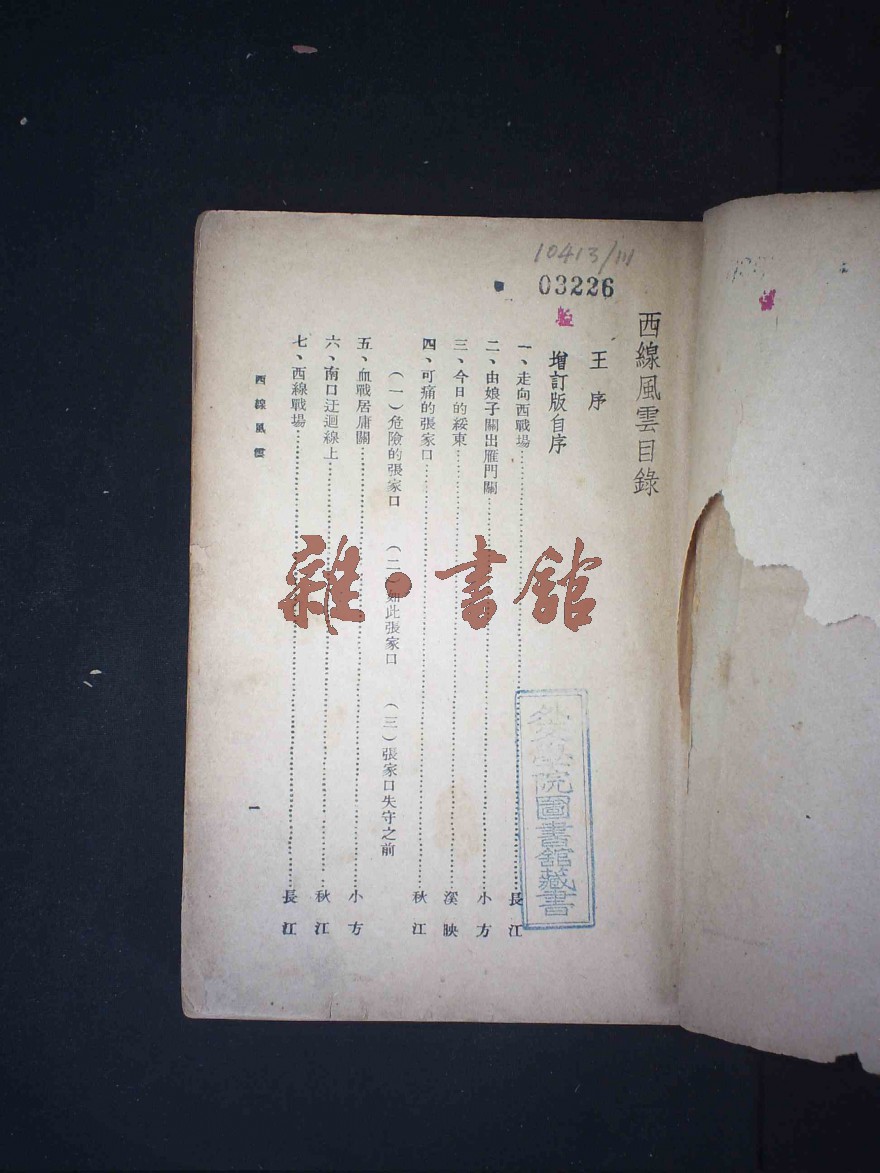 10413/111
03226
西線風雲目錄
王序
增訂版自序
一、走向西戰場……長江
二、由娘子關出雁門關……小方
三、今日的綏東……溪映
四、可痛的張家口……秋江
（一）危險的張家口 （二）如此張家口 （三）張家口失守之前
五、血戰居庸關……小方
六、南口迂迴線上……秋江
七、西線戰場……長江
西線風雲
一
雜·書館
學院圖書館藏書